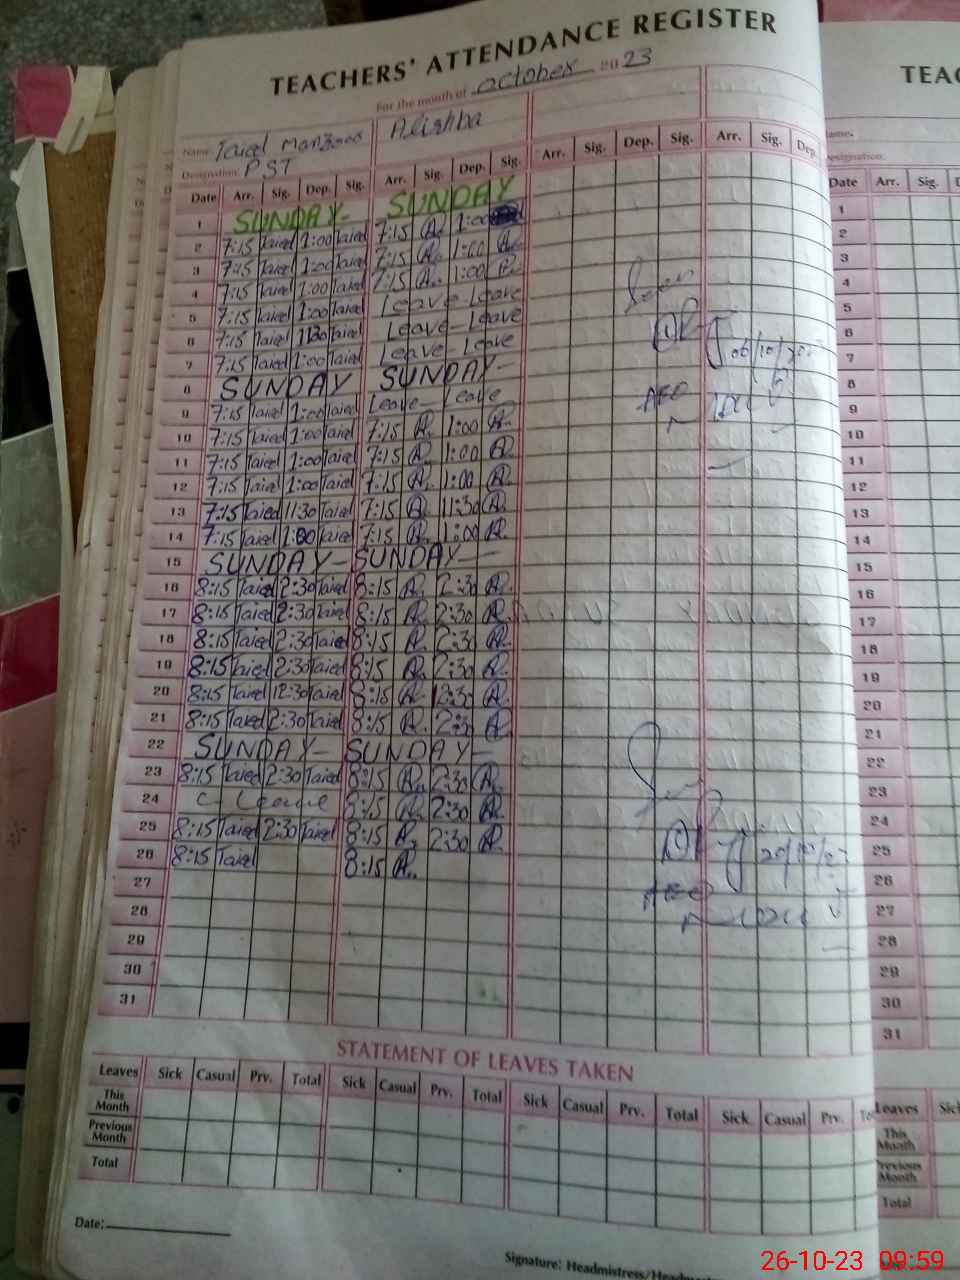 TEACHERS' ATTENDANCE REGISTER
TEAC
For the month of October 2023
Name. Alishba
Designation. PST
Date Arr. Sig. Dep. Sig. Arr. Sig. Dep. Sig. Arr. Sig. Dep. Sig. Arr. Sig. Dep.
1 SUNDAY- SUNDAY
2 7:15 Taied 1:00 Taied 7:15 A. 1:00
3 7:15 Taied 1:00 Taied 7:15 A. 1:00 A.
4 7:15 Taied 1:00 Taied 7:15 A. 1:00 A.
5 7:15 Taied 1:00 Taied Leave-Leave
6 7:15 Taied 1130 Taied Leave-Leave
7 7:15 Taied 1:00 Taied Leave-Leave
8 SUNDAY SUNDAY-
9 7:15 Taied 1:00 Taied Leave- Leave
10 7:15 Taied 1:00 Taied 7:15 A. 1:00 A.
11 7:15 Taied 1:00 Taied 7:15 A. 1:00 A.
12 7:15 Taied 1:00 Taied 7:15 A. 1:00 A.
13 7:15 Taied 11:30 Taied 7:15 A. 11:30 A.
14 7:15 Taied 1:00 Taied 7:15 A. 1:00 A.
15 SUNDAY-SUNDAY-
16 8:15 Taied 2:30 Taied 8:15 A. 2:30 A.
17 8:15 Taied 2:30 Taied 8:15 A. 2:30 A.
18 8:15 Taied 2:30 Taied 8:15 A. 2:30 A.
19 8:15 Taied 2:30 Taied 8:15 A. 2:30 A.
20 8:15 Taied 12:30 Taied 8:15 A. 12:30 A.
21 8:15 Taied 2:30 Taied 8:15 A. 2:30 A.
22 SUNDAY- SUNDAY-
23 8:15 Taied 2:30 Taied 8:15 A. 2:30 A.
24 C-Leave 8:15 A. 2:30 A.
25 8:15 Taied 2:30 Taied 8:15 A. 2:30 A.
26 8:15 Taied 8:15 A.
27
28
29
30
31
Seen
06/10/2023
AEO
AEO
STATEMENT OF LEAVES TAKEN
Leaves Sick Casual Prv. Total Sick Casual Prv. Total Sick Casual Prv. Total Sick Casual Prv.
This Month
Previous Month
Total
Date:
Signature: Headmistress/
Name.
Designation.
Date Arr. Sig.
1
2
3
4
5
6
7
8
9
10
11
12
13
14
15
16
17
18
19
20
21
22
23
24
25
26
27
28
29
30
31
Leaves
This Month
Previous Month
Total
26-10-23 09:59